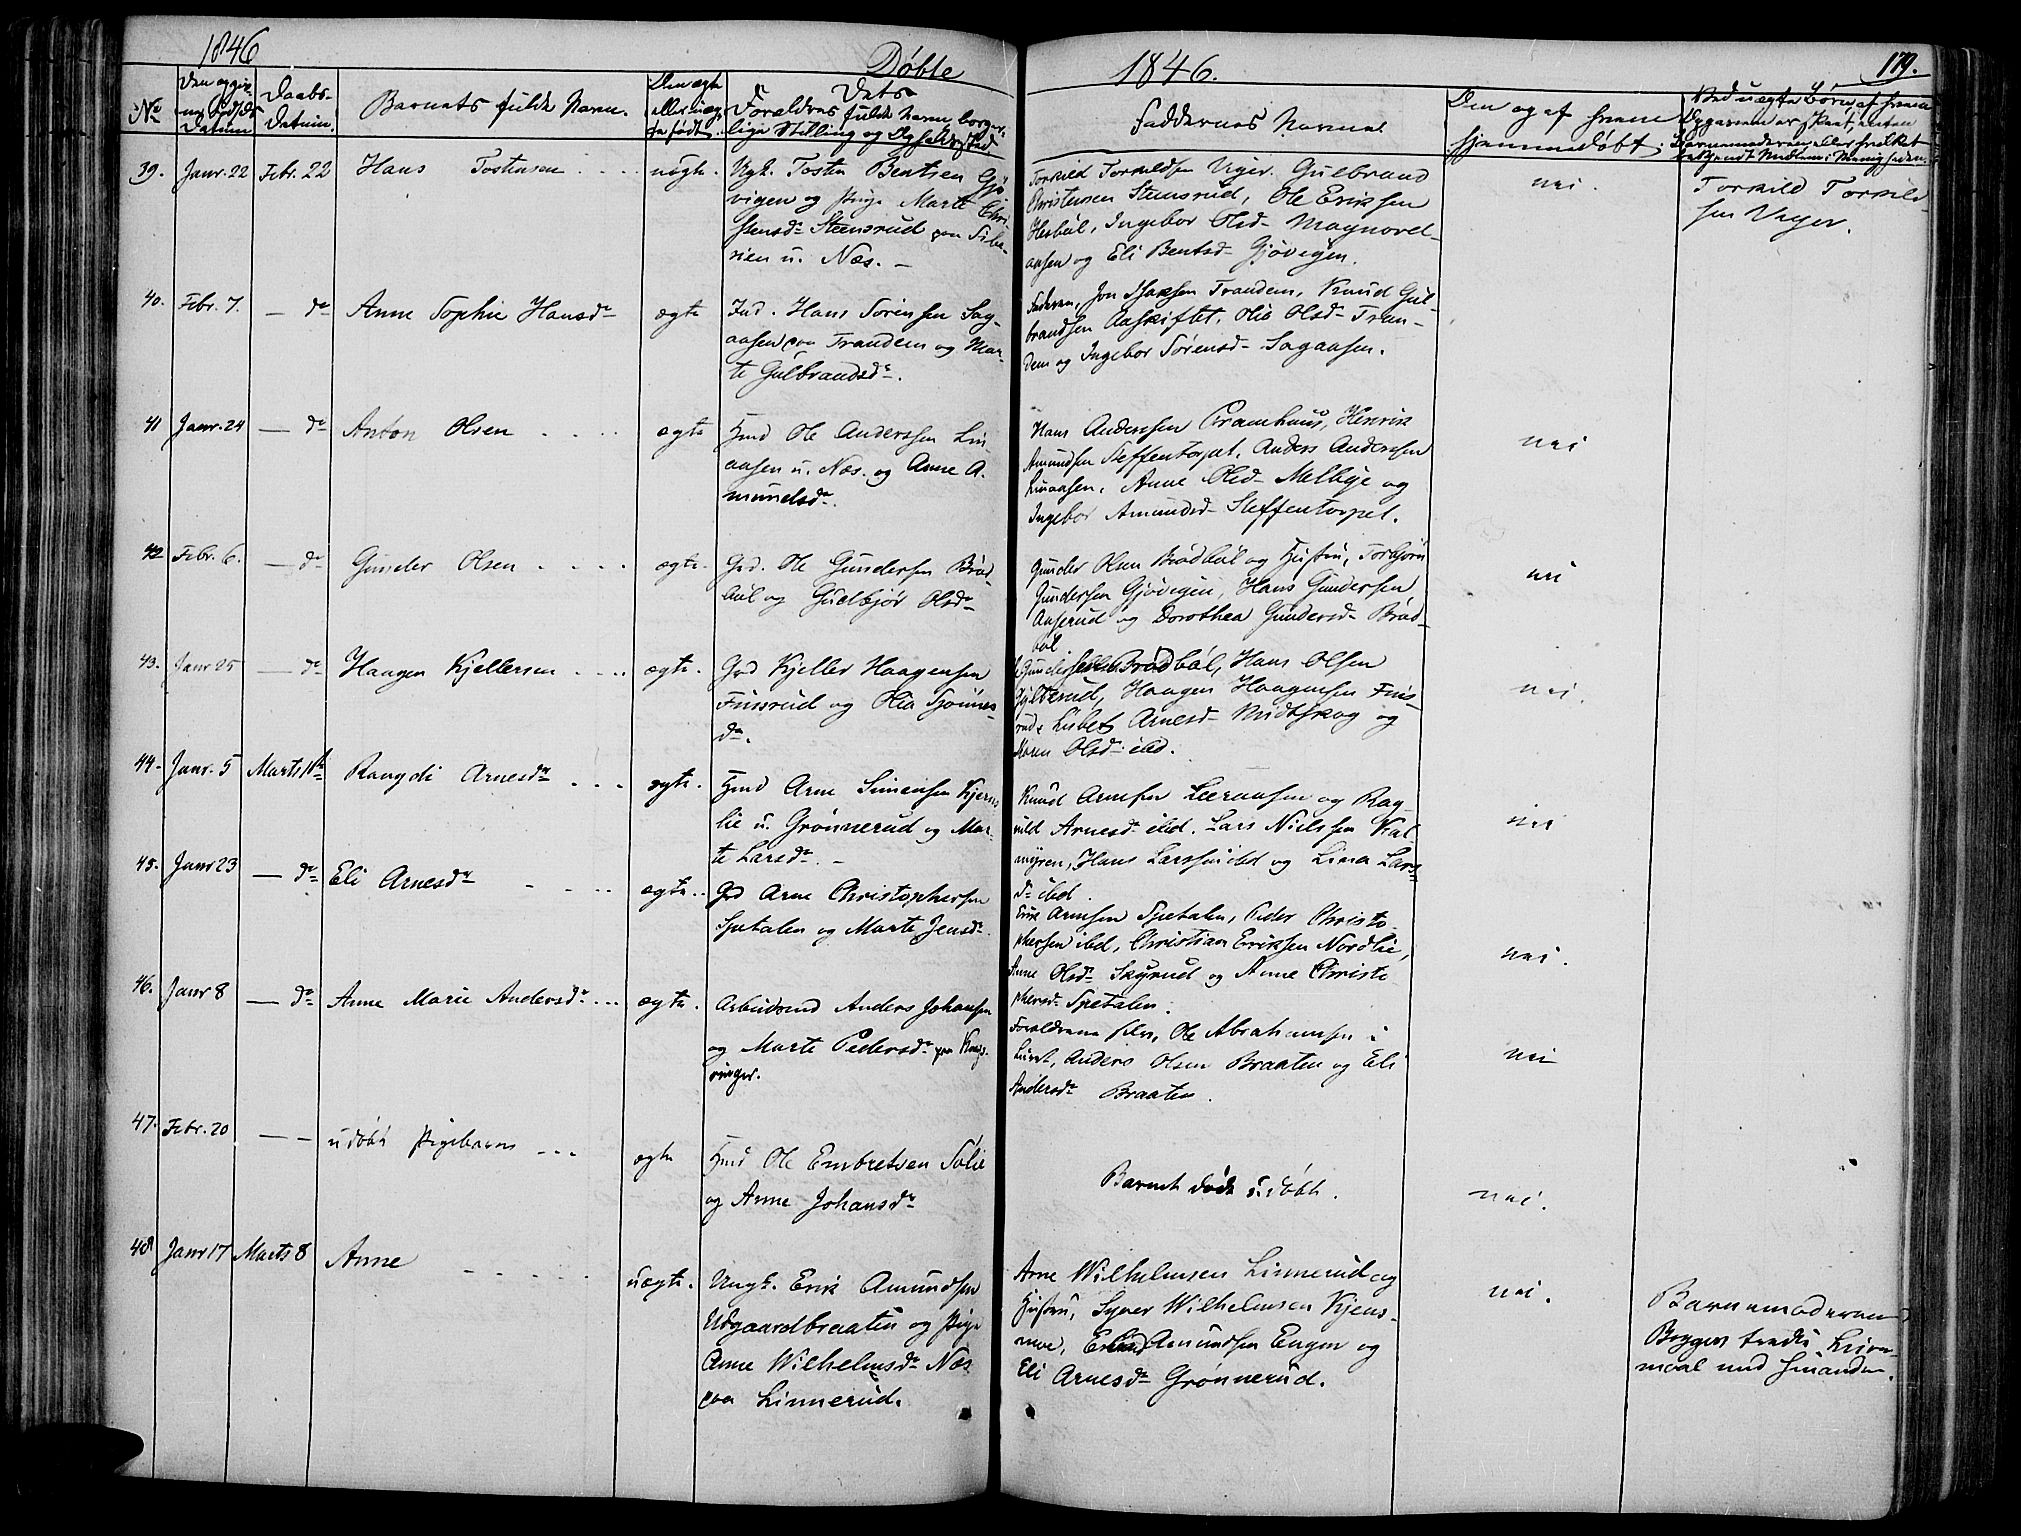 1846
Døbte
1846.
179.
No
Daabs-
Datum.
Barnets fulde Navn.
Forældres fulde Navn, borger-
lige Stilling og
Faddernes Navne.
39. Janr. 22 Febr. 22 Hans Tostensen uægte. Ugk. Tosten Bentsen Gjø
vigen og Pige Marte Chri
stensdr Steensrud paa Sibe-
rien u. Næs. -
Torkild Torkildsen Uger. Gulbrand
Christensen Stensrud, Ole Eriksen
Hesbøl, Ingebor Olsd. Magnord-
aasen og Eli Bentsd. Gjøvigen.
nei.
Torkild Torkild-
sen Uger.
40. Febr. 7. - dr Anne Sophie Hansdr ægte Ind. Hans Sørensen Sag-
aasen paa Trandem og Mar-
te Gulbrandsdr.
Faderen, Jon Isaksen Trandem, Knud Gul-
brandsen Aaskiftet, Olia Olsd. Tran-
dem og Ingebor Sørensd. Sagaasen.
41 Janr. 24 - dr Anton Olsen ægte Hmd Ole Anderssen Lin
aasen u. Næs. og Anne A-
mundsdr.
Hans Anderssen Pramhuus, Henrik
Amundsen Steffentorpet, Anders Anderssen
Linaasen, Anne Olsd. Melbye og
Ingebor Amundsd. Steffentorpet.
nei
42 Febr. 6. - dr Gunder Olsen ægte. Grd. Ole Gundersen Brød
bøl og Gudbjør Olsdr
Gunder Olsen Brødbøl og Hustru, Torbjørn
Gundersen Gjøvigen, Hans Gundersen
Aaserud og Dorothea Gundersd. Brød-
bøl
nei
43. Janr 25 - dr Haagen Kjellersen ægte. Grd Kjeller Haagensen
Fuusrud og Olia
dr.
Gundersen Brødbøl, Hans Olsen
Haagen Haagensen Fuus-
rud, Lisbet Arnesd. Midtskog og
Karen Olsd. ibd.
nei.
44. Janr. 5 Marts 1ste Rangdi Arnesdr ægte. Hmd Arne Simensen Kjerns
lie u. Grønnerud og Mar-
te Larsdr. -
Knud Arnesen Leeraasen og Rag-
nild Arnesdr ibd. Lars Nielssen Kal
myren, Hans Larssen ibd og Lina Lars-
dr ibd.
nei
45. Janr 23 - dr Eli Arnesdr ægte. Grd Arne Christophersen
Spetalen og Marte Jensdr.
Erik Arnesen Spetalen, Peder Christo
phersen ibd, Christian Eriksen Nordlie,
Anne Olsdr Skyrud og Anne Christo
phersdr Spetalen.
nei.
46. Janr 8 - dr Anne Marie Andersdr ægte. Arbeidsmd Anders Johansen
og Marte Pedersdr paa Kongs-
vinger.
Forældrene selv, Ole Abrahamsen i
Lunt, Anders Olsen Braaten og Eli
Andersdr Braaten.
nei
47. Febr. 20 - - udøbt Pigebarn ægte Hmd Ole Embretsen Solie
og Anne Johansdr
Barnet døde udøbt.
nei.
48 Janr 17 Marts 8 Anne uægte. Ungk. Erik Amundsen
Udgaardbraaten og Pige
Anne Wilhelmsdr Næs
paa Linnerud.
Arne Wilhelmsen Linnerud og
Hustru, Syver Wilhelmsen Kjens-
moe, Amundsen Engen og
Eli Arnesdr Grønnerud.
nei.
Barnemoderens
Brøgers tredie Leier-
maal med